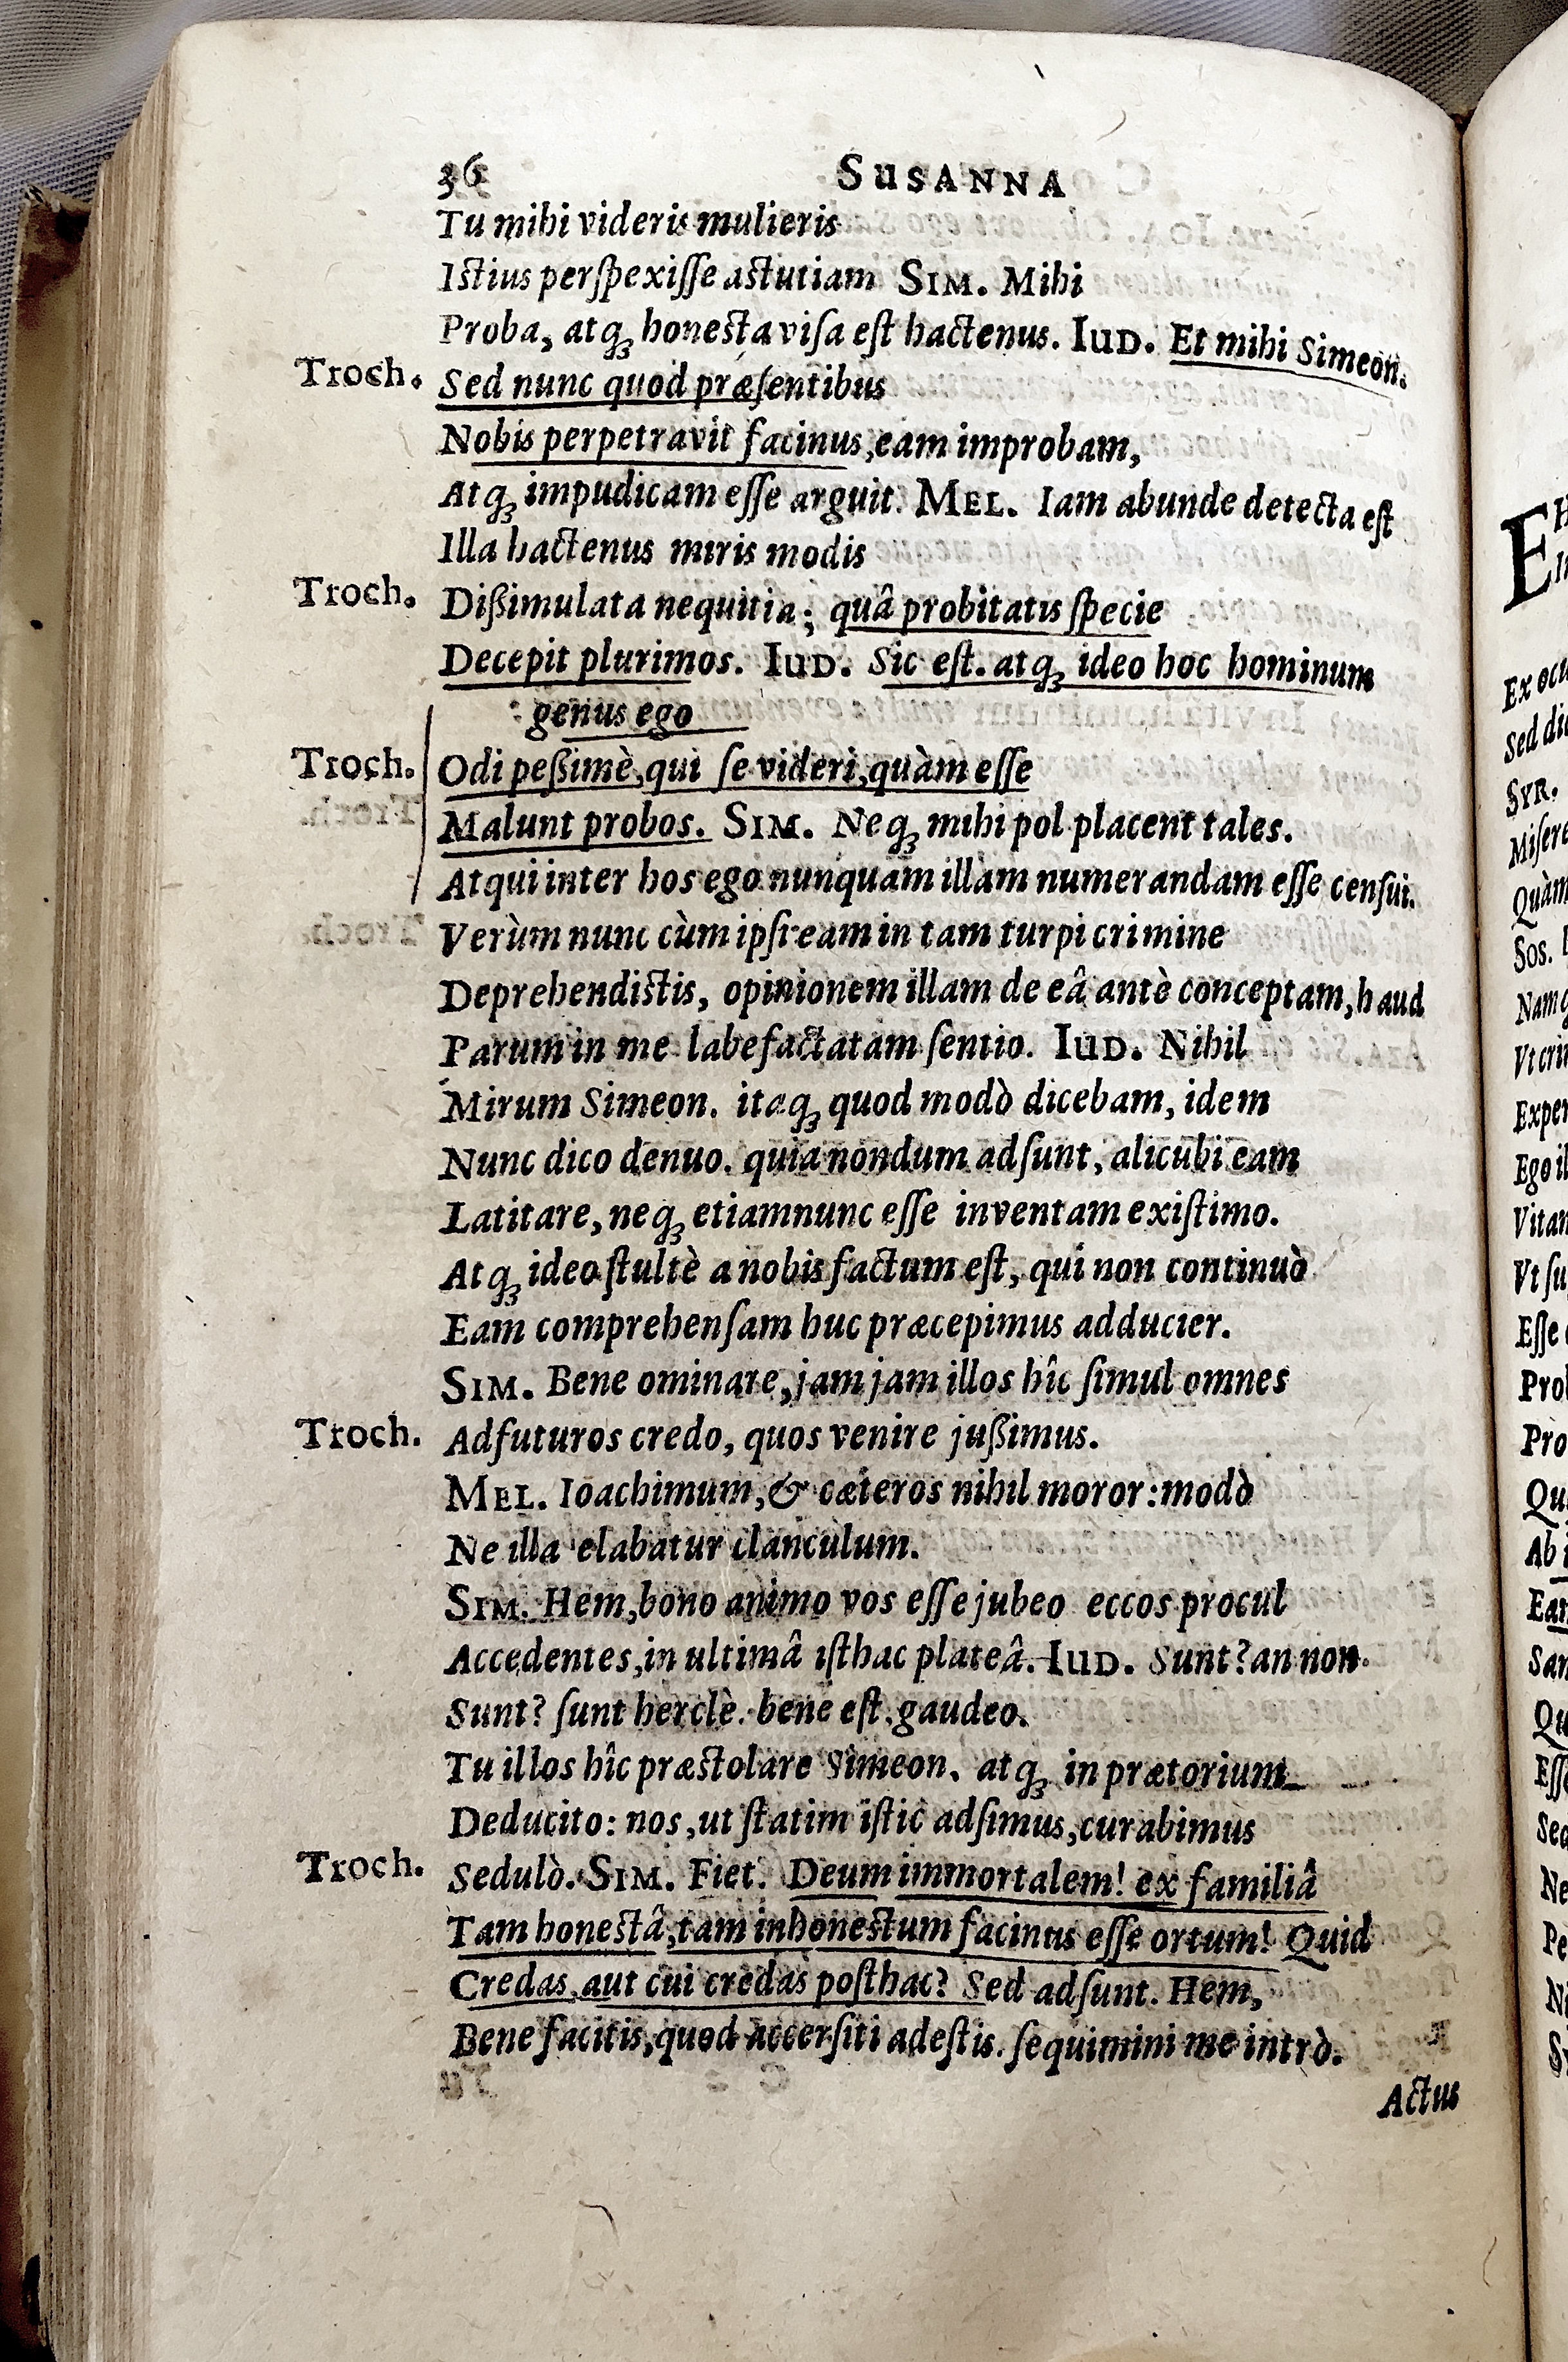 36 SUSANNA
Tu mihi videris mulieris
Istius perſpexiſſe astutiam SIM. Mihi
Proba, atq; honesta viſa eſt hactenus. IUD. Et mihi Simeon.
Troch. Sed nunc quod præſentibus
Nobis perpetravit facinus, eam improbam,
Atq; impudicam eſſe arguit. MEL. Iam abunde detecta eſt
Illa hactenus miris modis
Troch. Dißimulata nequitia; quâ probitatis ſpecie
Decepit plurimos. IUD. Sic eſt. atq; ideo hoc hominum
genus ego
Troch. Odi peßimè, qui ſe videri, quàm eſſe
Malunt probos. SIM. Neq; mihi pol placent tales.
Atqui inter hos ego nunquam illam numerandam eſſe cenſui.
Verùm nunc cùm ipſi eam in tam turpi crimine
Deprehendistis, opinionem illam de eâ antè conceptam, haud
Parum in me labefactatam ſentio. IUD. Nihil
Mirum Simeon. itaq; quod modò dicebam, idem
Nunc dico denuo. quia nondum adſunt, alicubi eam
Latitare, neq; etiamnunc eſſe inventam exiſtimo.
Atq; ideo ſtultè a nobis factum eſt, qui non continuò
Eam comprehenſam huc præcepimus adducier.
SIM. Bene ominare, jam jam illos hîc ſimul omnes
Troch. Adfuturos credo, quos venire jußimus.
MEL. Ioachimum, & cæteros nihil moror: modò
Ne illa elabatur clanculum.
SIM. Hem, bono animo vos eſſe jubeo eccos procul
Accedentes, in ultimâ iſthac plateâ. IUD. Sunt? an non
Sunt? ſunt herclè. bene eſt. gaudeo.
Tu illos hîc præstolare Simeon. atq; in prætorium
Deducito: nos, ut ſtatim iſtic adſimus, curabimus
Troch. Sedulò. SIM. Fiet. Deum immortalem! ex familiâ
Tam honestâ, tam inhonestum facinus eſſe ortum! Quid
Credas, aut cui credas poſthac? Sed adſunt. Hem,
Bene facitis, quod accerſiti adeſtis. ſequimini me intrò.
Actus